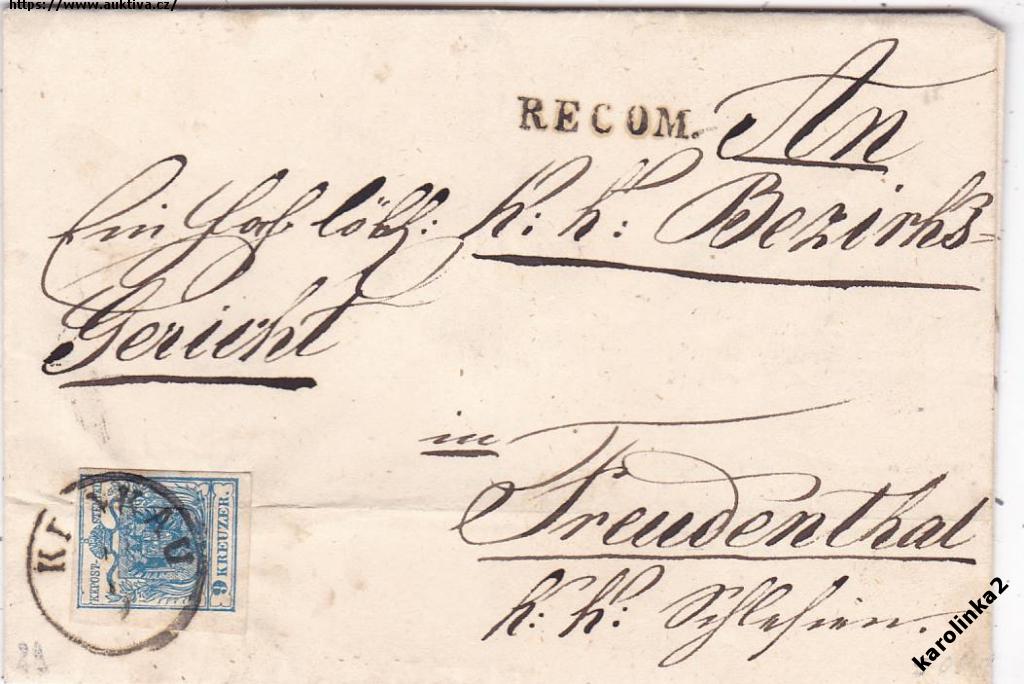 https://www.auktiva.cz/
RECOM.
An
Ein löbl: k: k: Bezirks-
Gericht
in
Freudenthal
k: k: Schlesien.
KKPOST-STEMPEL
9 KREUZER.
karolinka2